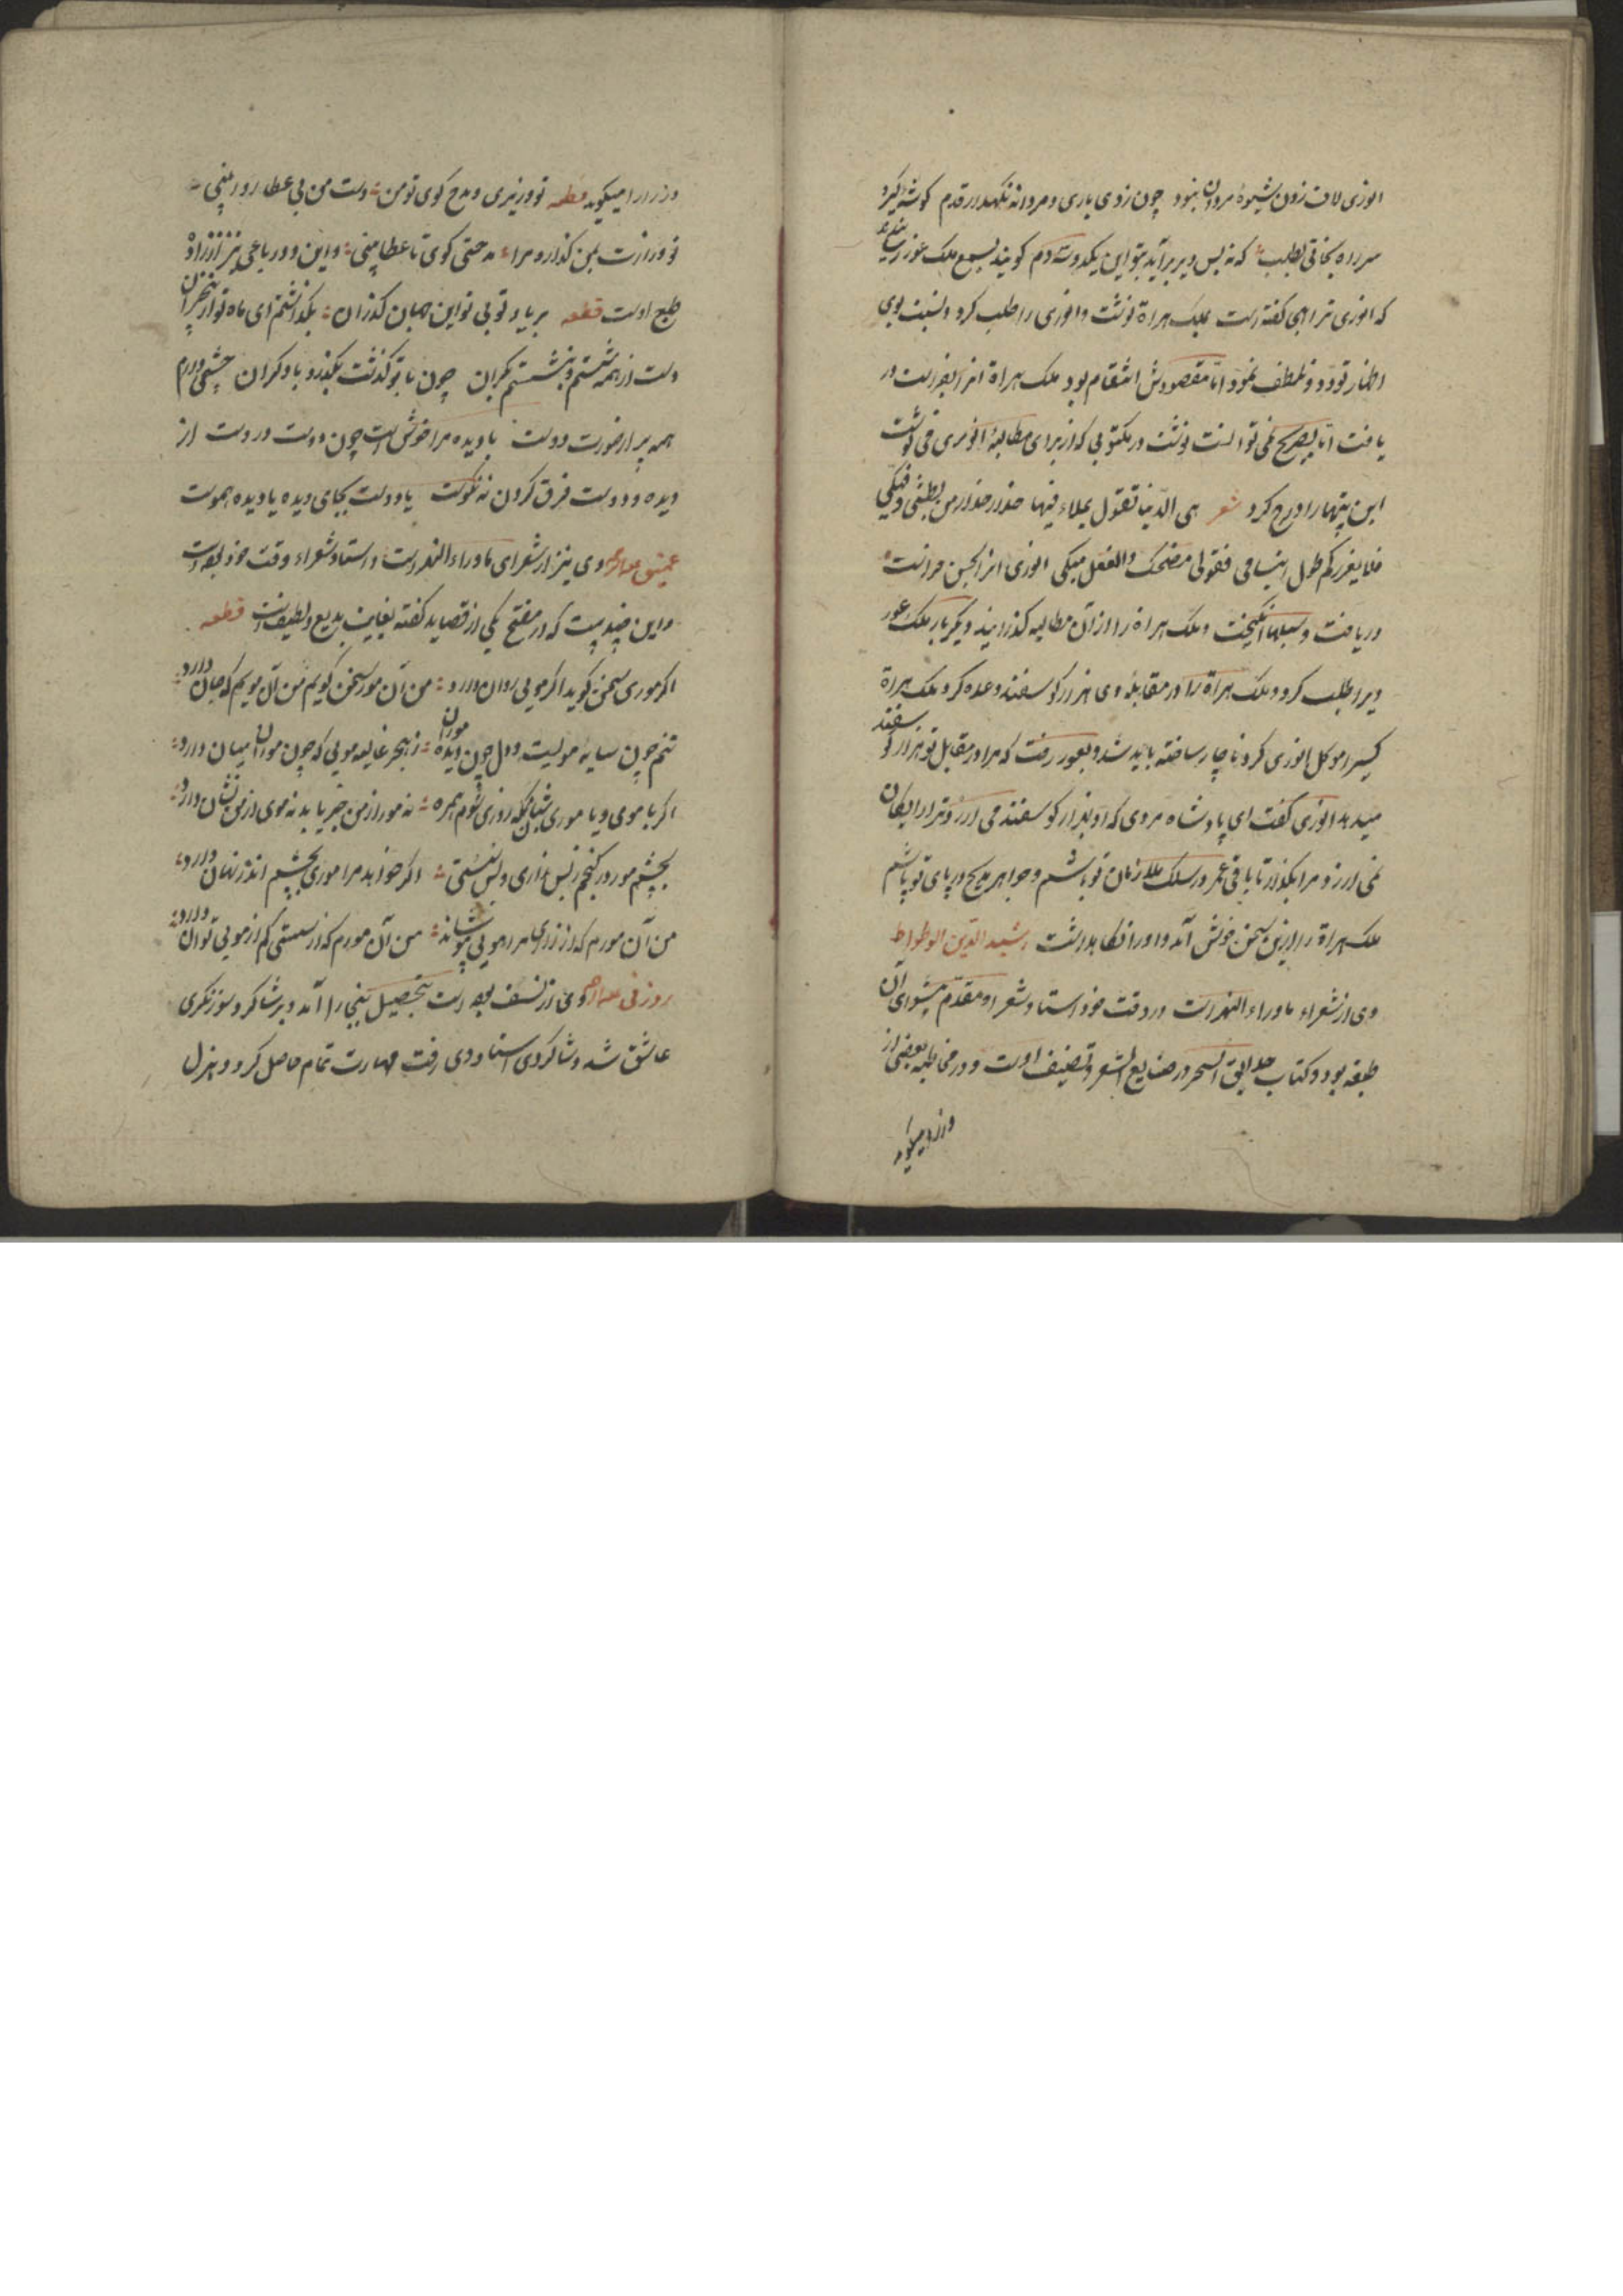 انوری لاف زدن شیوهٔ مردان نبود چون زدی باری و مردانه نکهدار قدم کوشه‌ٔ کیر و
سر راه نجاتی بطلب که نه بس دیر برآید بتو این یکدوسه دم کویند بسمع ملک غور رسانیدند
که انوری ترا هجو کفته است بملک هراة نوشت و انوری را طلب کرد و نسبت بوی
اظهار تودد و تلطف نمود اما مقصودش انتقام بود ملک هراة انرا بفراست در
یافت اما بصریح نمی توانست نوشت در مکتوبی که از برای مطالبهٔ انوری می نوشت
این بیتها را درج کرد شعر هی الدنیا تقول بملاء فیها حذار حذار من بطشی و فتکی
فلا یغررکم طول ابتسامی فقولی مضحک والفعل مبکی انوری انرا بحسن فراست
دریافت و سیلها انکیخت و ملک هراة را از آن مطالبه کذرانید دیکر بار ملک غور
ویرا طلب کرد و ملک هراة را در مقابلهٔ وی هزار کوسفند وعده کرد ملک هراة
کسی را موکل انوری کرد ناچار ساخته باید شد و بغور رفت که مرا در مقابل تو هزار کوسفند
میدهد انوری کفت ای پادشاه مردی که او بهزار کوسفند می ارزد ترا رایکان
نمی ارزد مرا بکذار تا باقی عمر در سلک ملازمان تو باشم و جواهر مدیح در پای تو پاشم
ملک هراة را ازین سخن خوش آمد و او را نکاه داشت رشید الدین الوطواط
وی از شعراء ماوراء النهر است در وقت خود استاد شعرا و مقدم پیشوای آن
طبقه بود و کتاب حدایق السحر در صنایع الشعر تصنیف اوست و در مخاطبه بعضی از
وزرا میکوید
وزرا را میکوید قطعه تو وزیری و مدح کوی تو من دست من بی عطا روا بینی
تو وزارت بمن کذار و مرا مدحتی کوی تا عطا بینی و این دو رباعی نیز از زادهٔ
طبع اوست قطعه بر یاد تو بی تو این جهان کذران بکذاشتم ای ماه تو از بیخبران
دست از همه شستم و نشستم بکران چون با تو کذشت بکذرد با دکران چشمی دارم
همه پر از صورت دوست با دیده مرا خوش است چون دوست دروست از
دیده و دوست فرق کردن نه نکوست یا دوست بجای دیده یا دیده هموست
عمعق بخاری وی نیز از شعرای ماوراء النهر است و استاد شعراء وقت خود بوده است
و این چند بیت که در مفتح یکی از قصاید کفته بغایت بدیع و لطیف است قطعه
اکر موری سخن کوید اکر مویی روان دارد من آن مور سخن کویم من آن مویم که جان دارد
تنم چون سایهٔ مویست و دل چون دیدهٔ موران ز هجر غالیه مویی که چون موران میان دارد
اکر با موی و با موری شبانکه روزی شوم همره نه مور از من خبر یابد نه موی از من نشان دارد
بچشم مور در کنجم ز بس زاری و بس سستی اکر خواهد مرا موری بچشم اندر نهان دارد
من آن مورم که از زاری مرا مویی بپوشاند من آن مورم که از سستی کم از مویی توان دارد
سوزنی وی از نسف بوده است بتحصیل ببخارا آمد و بر شاکرد سوزنکری
عاشق شد و شاکردی استاد وی رفت مهارت تمام حاصل کرد و بهزل